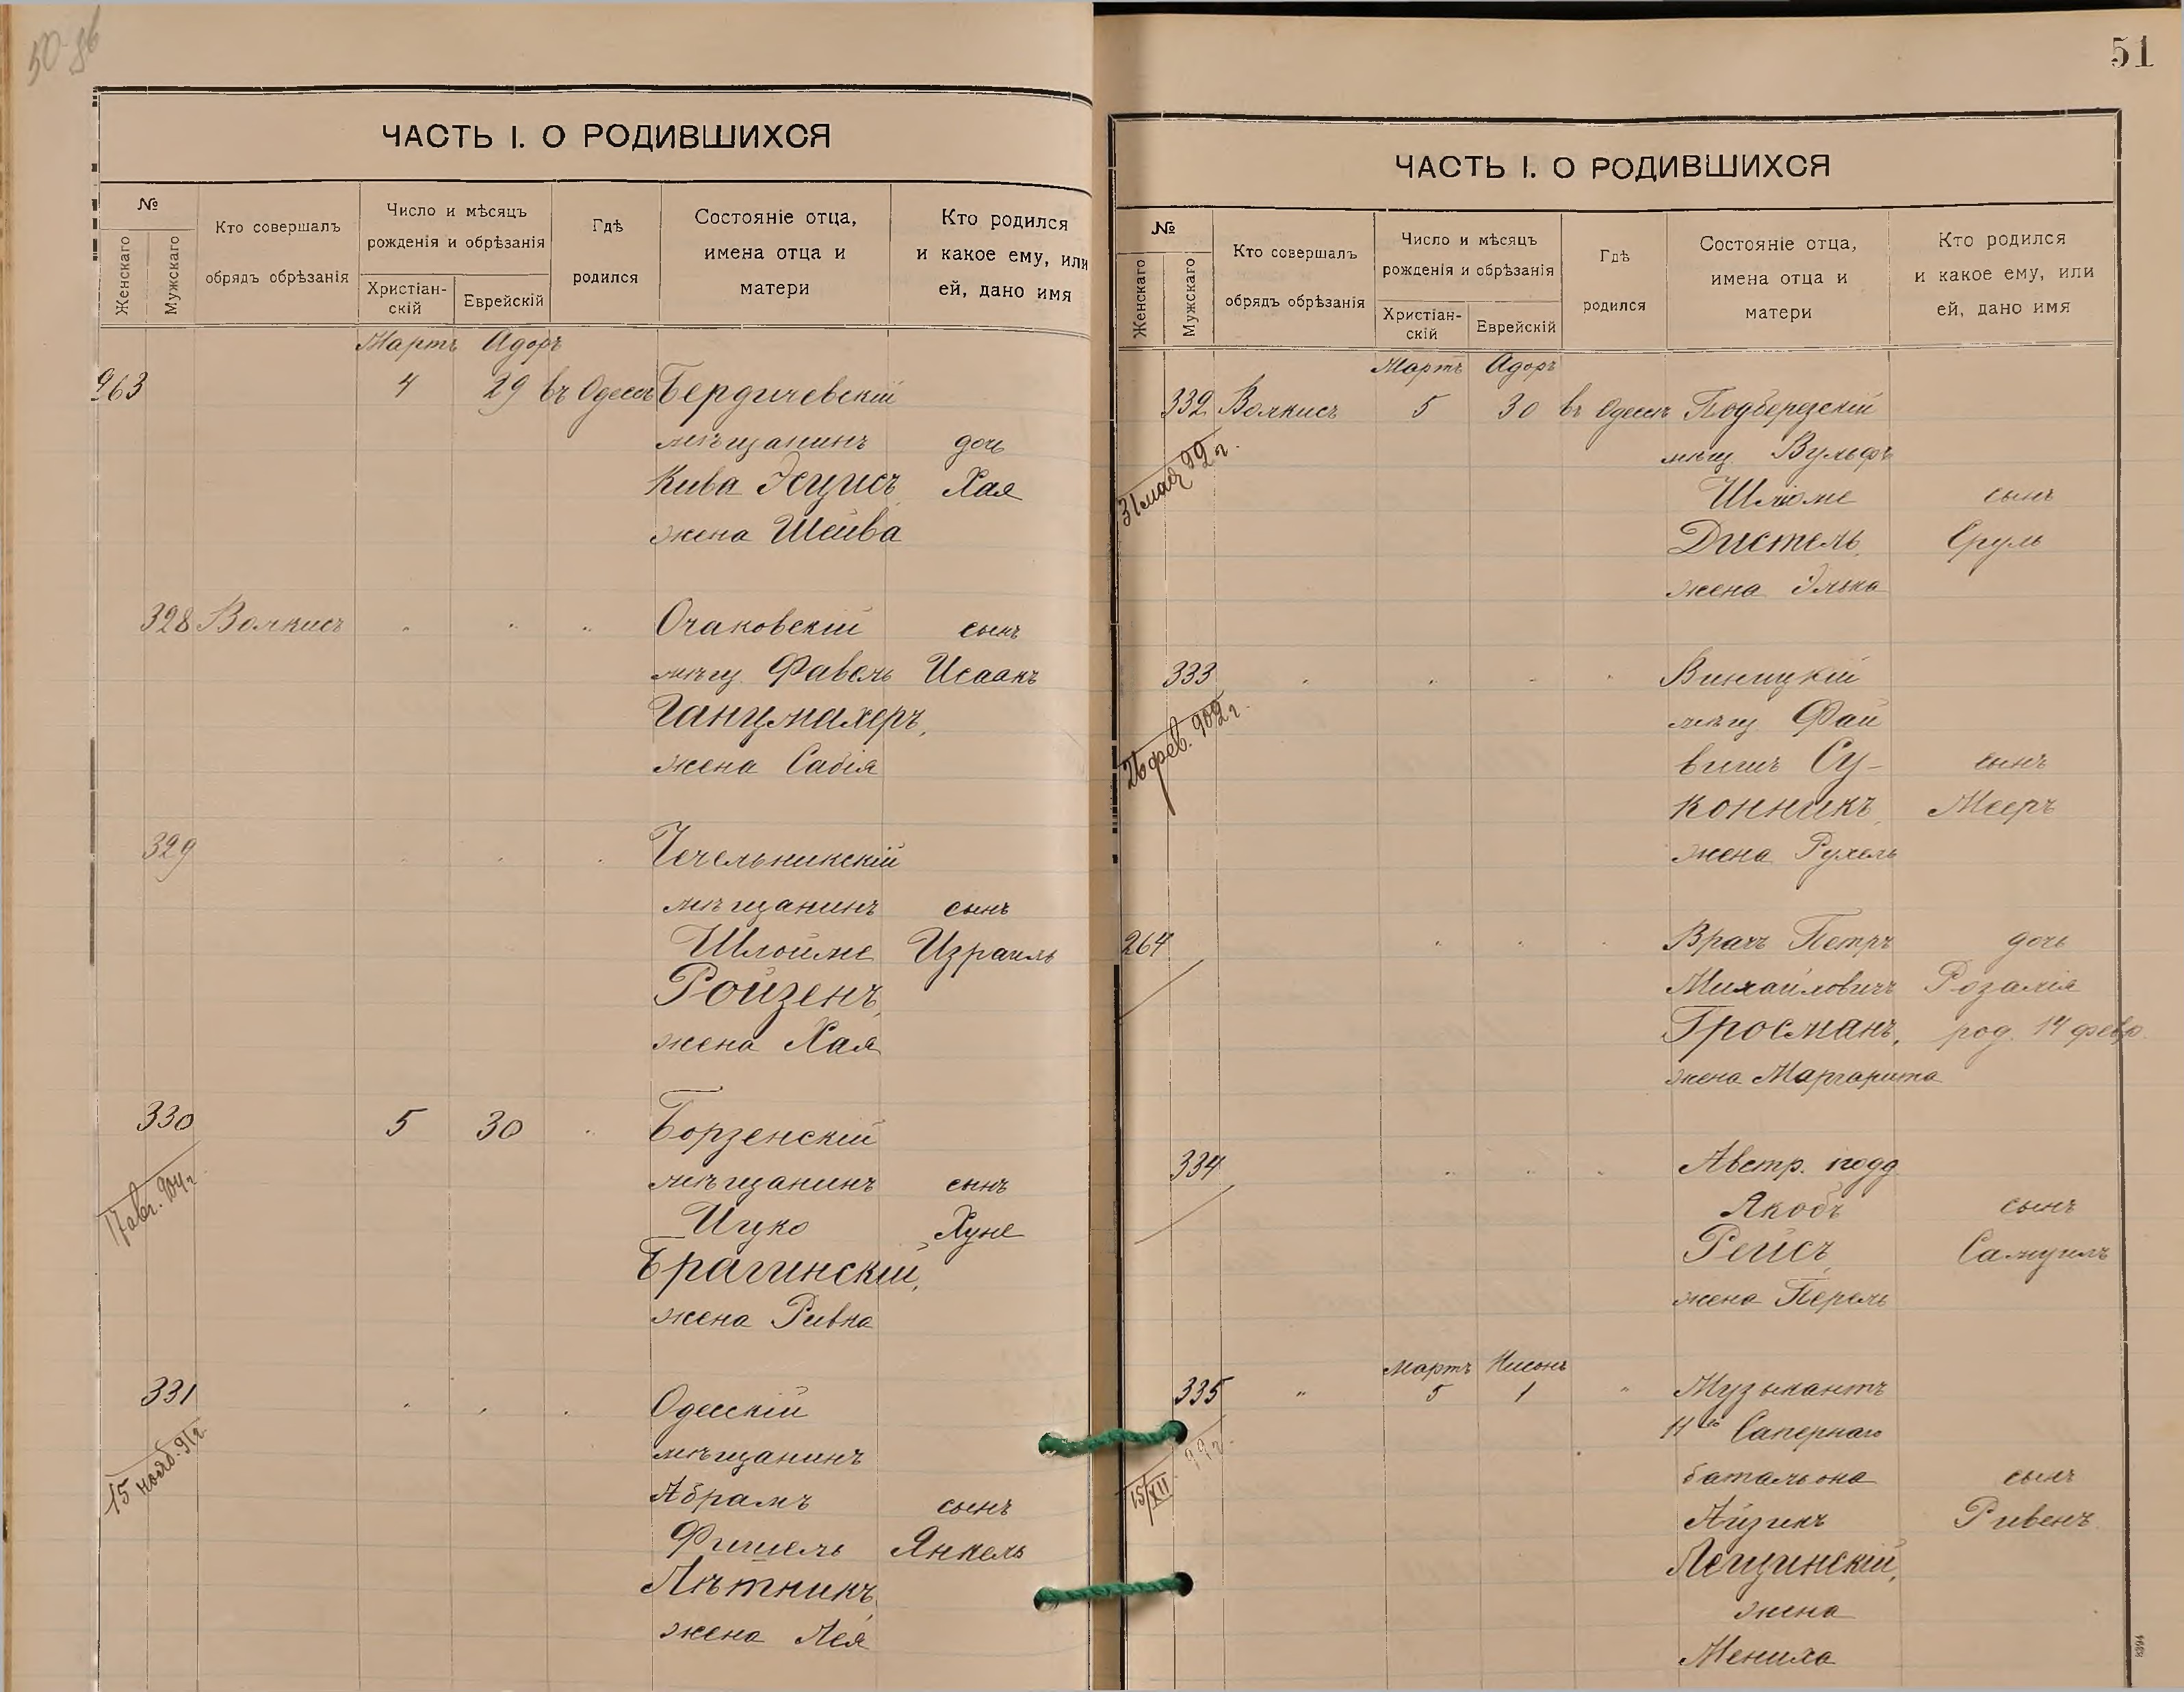 50 об
ЧАСТЬ I. О РОДИВШИХСЯ
№
Женскаго
Мужскаго
Кто совершалъ
обрядъ обрѣзанія
Число и мѣсяцъ
рожденія и обрѣзанія
Христіан-
скій
Еврейскій
Гдѣ
родился
Состояніе отца,
имена отца и
матери
Кто родился
и какое ему, или
ей, дано имя
Мартъ Адоръ
263 4 29 въ Одессѣ Бердичевскій
мѣщанинъ дочь
Кива Хая
жена Шейва
328 Волкисъ " " " Очаковскій сынъ
мѣщ. Фавель Исаакъ
Ганцмахеръ,
жена Сабія
329 " " " Чечельникскій
мѣщанинъ сынъ
Шлойме Израиль
Ройзенъ,
жена Хая
330 5 30 " Борзенскій
17 авг. 904 г.
мѣщанинъ сынъ
Ицко Хуне
Брагинскій,
жена Ривка
331 " " " Одесскій
15 нояб. 91 г.
мѣщанинъ
Абрамъ сынъ
Фишель Янкель
Лѣтникъ,
жена Лея
51
ЧАСТЬ I. О РОДИВШИХСЯ
№
Женскаго
Мужскаго
Кто совершалъ
обрядъ обрѣзанія
Число и мѣсяцъ
рожденія и обрѣзанія
Христіан-
скій
Еврейскій
Гдѣ
родился
Состояніе отца,
имена отца и
матери
Кто родился
и какое ему, или
ей, дано имя
Мартъ Адоръ
332 Волкисъ 5 30 въ Одессѣ Подберезскій
31 мая 99 г.
мѣщ. Вульфъ
Шлiоме сынъ
Дистель, Сруль
жена Элька
333 " " " " Виницкій
26 фев. 902 г.
мѣщ. Фай
вишъ Су- сынъ
конникъ, Мееръ
жена Рухель
264 " " " Врачъ Петръ дочь
Михайловичъ Розалія
Гросманъ, род. 14 февр.
жена Маргарита
334 " " " Австр. подд.
Якобъ сынъ
Рейсъ, Самуилъ
жена Перель
Мартъ Нисонъ
335 " 5 1 " Музыкантъ
15/XII 99 г.
11го Сапернаго
батальона сынъ
Айзикъ Ривенъ
Лещинскій,
жена
Мениха
8394